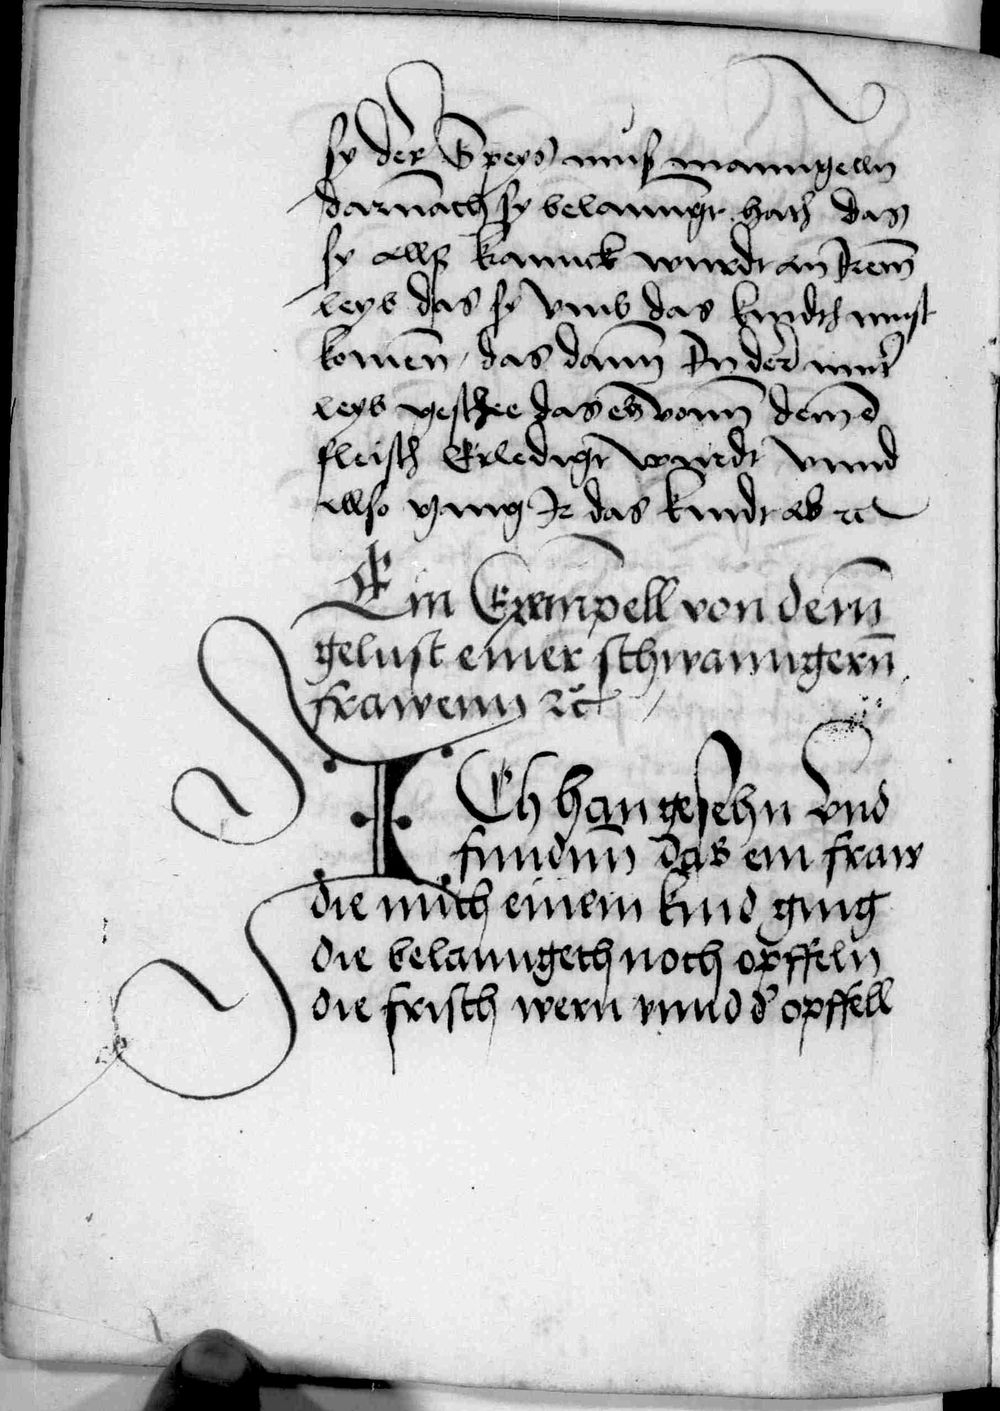 sy der Speys mus manngelln
darnach sy belanngt hath das
sy allss kannck wurdt an Irem̄
leyb das sy vmb das kindth must
komen̄ das dann In der mutr
leyb geschee das es vonn deme
fleisch Erledigt wurdt vnnd
also ging Ir das kindt ab ꝛc
Ein Exempell von dem̄
gelust einer schwanngern̄
frawenn ꝛc
ICh han gesehn vnd
fundnn das ein fraw
die mitth einem kind ging
die belanngeth noch opffeln
die frisch wern vnnd d' opffell